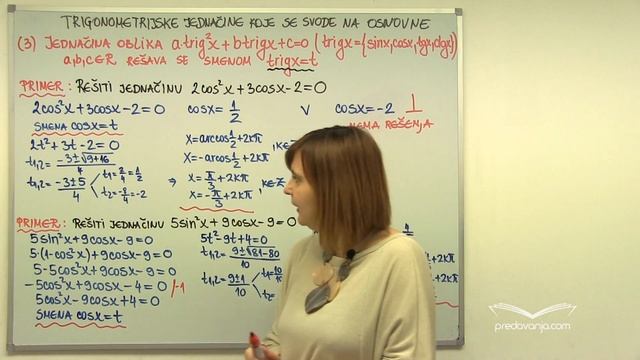 TRIGONOMETRIJSKE JEDNAČINE KOJE SE SVODE NA OSNOVNE
(3) JEDNAČINA OBLIKA a·trig²x+b·trigx+c=0 (trigx={sinx,cosx,tgx,ctgx})
a,b,c∈R REŠAVA SE SMENOM trigx=t
PRIMER: REŠITI JEDNAČINU 2cos²x+3cosx-2=0
2cos²x+3cosx-2=0
SMENA cosx=t
2t²+3t-2=0
t₁,₂=-3±√9+16/4
t₁,₂=-3±5/4 t₁=2/4=1/2
t₂=-8/4=-2
cosx=1/2 ∨ cosx=-2 ⊥
NEMA REŠENJA
x=arccos1/2+2kπ
x=-arccos1/2+2kπ
⇒ x=π/3+2kπ
x=-π/3+2kπ
PRIMER: REŠITI JEDNAČINU 5sin²x+9cosx-9=0
5sin²x+9cosx-9=0
5·(1-cos²x)+9cosx-9=0
5-5cos²x+9cosx-9=0
-5cos²x+9cosx-4=0 /·(-1)
5cos²x-9cosx+4=0
SMENA cosx=t
5t²-9t+4=0
t₁,₂=9±√81-80/10
t₁,₂=9±1/10 t₁=10/10
t₂=
+2kπ
+2kπ
predavanja.com